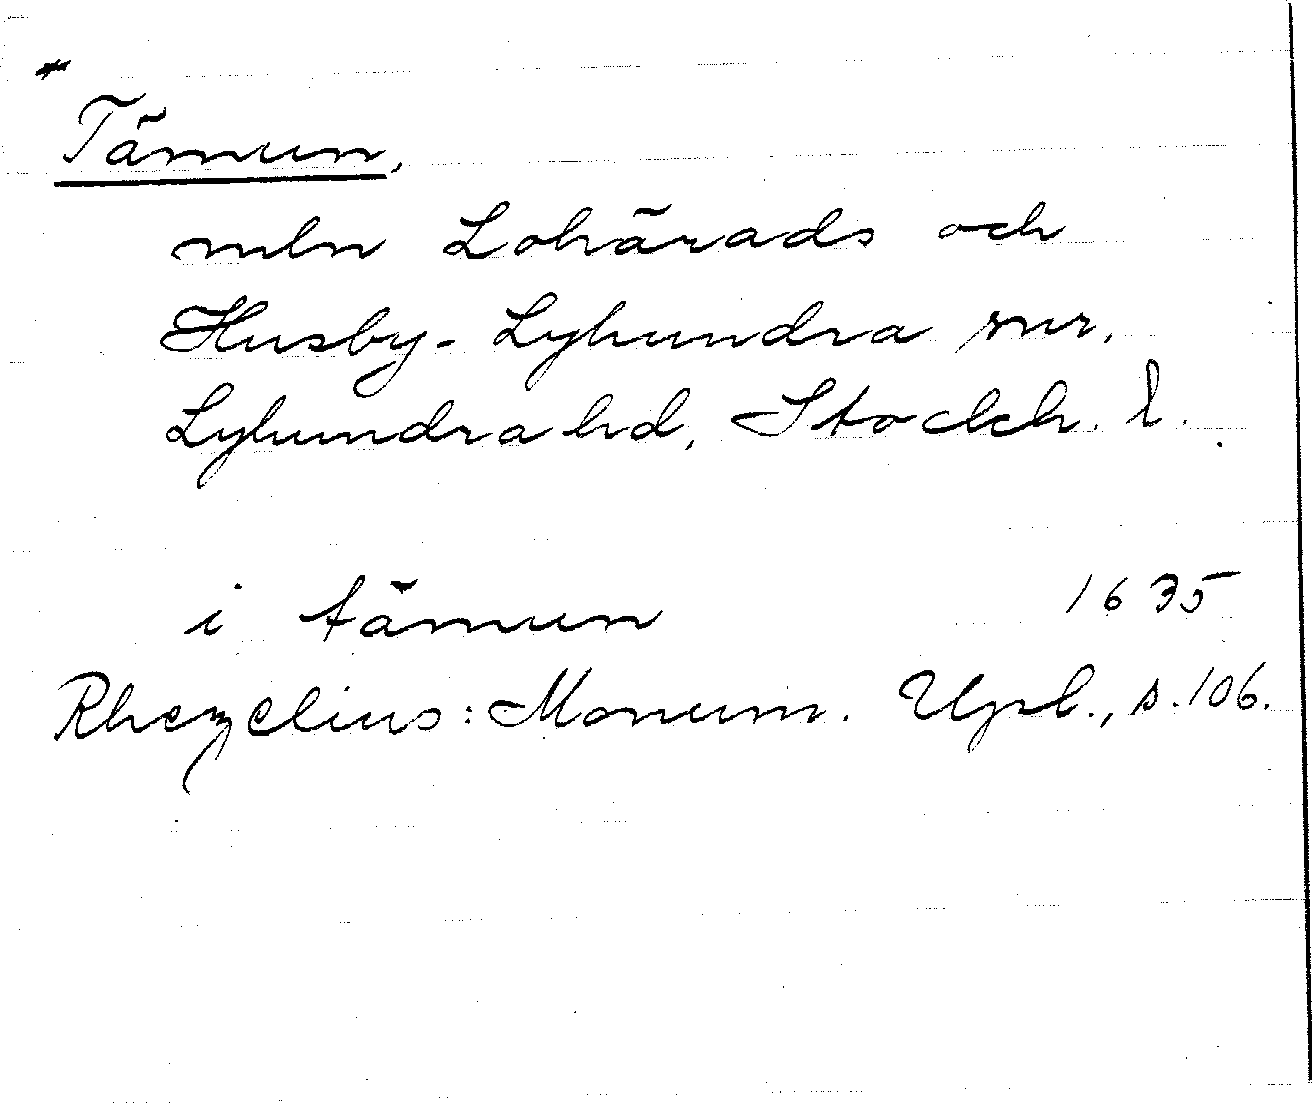 *
Tämun,
mln Lohärads och
Husby-Lyhundra snr.
Lyhundra hd, Stockh. l.
i tämun 1635
Rhezelius: Monum. Upl., s. 106.